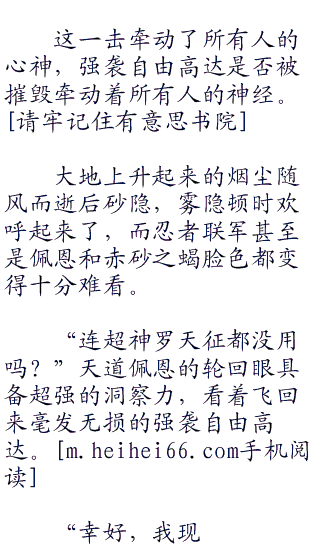 这一击牵动了所有人的
心神，强袭自由高达是否被
摧毁牵动着所有人的神经。
[请牢记住有意思书院]
大地上升起来的烟尘随
风而逝后砂隐，雾隐顿时欢
呼起来了，而忍者联军甚至
是佩恩和赤砂之蝎脸色都变
得十分难看。
“连超神罗天征都没用
吗？”天道佩恩的轮回眼具
备超强的洞察力，看着飞回
来毫发无损的强袭自由高
达。[m.heihei66.com手机阅
读]
“幸好，我现